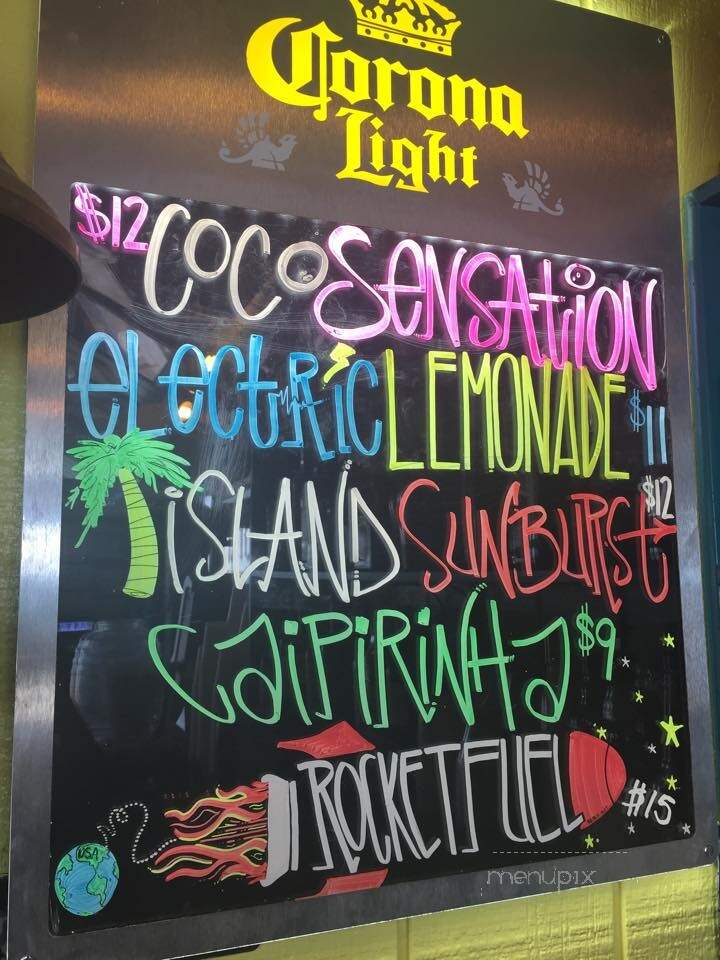 Corona
Light
$12 COCO SENSATION
ELECTRIC LEMONADE $11
ISLAND SUNBURST $12
CAIPIRINHA $9
ROCKET FUEL $15
USA
menupix